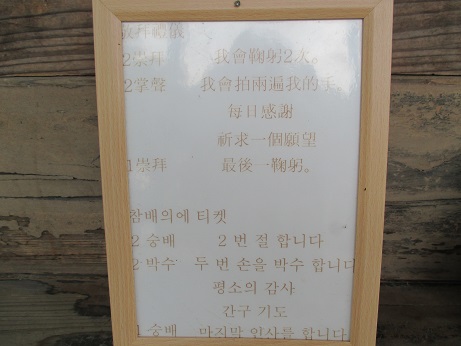 敬拜禮儀
2崇拜 我會鞠躬2次。
2掌聲 我會拍兩遍我的手。
每日感謝
祈求一個願望
1崇拜 最後一鞠躬。
참배의에 티켓
2 숭배 2 번 절 합니다
2 박수 두 번 손을 박수 합니다
평소의 감사
간구 기도
1 숭배 마지막 인사를 합니다